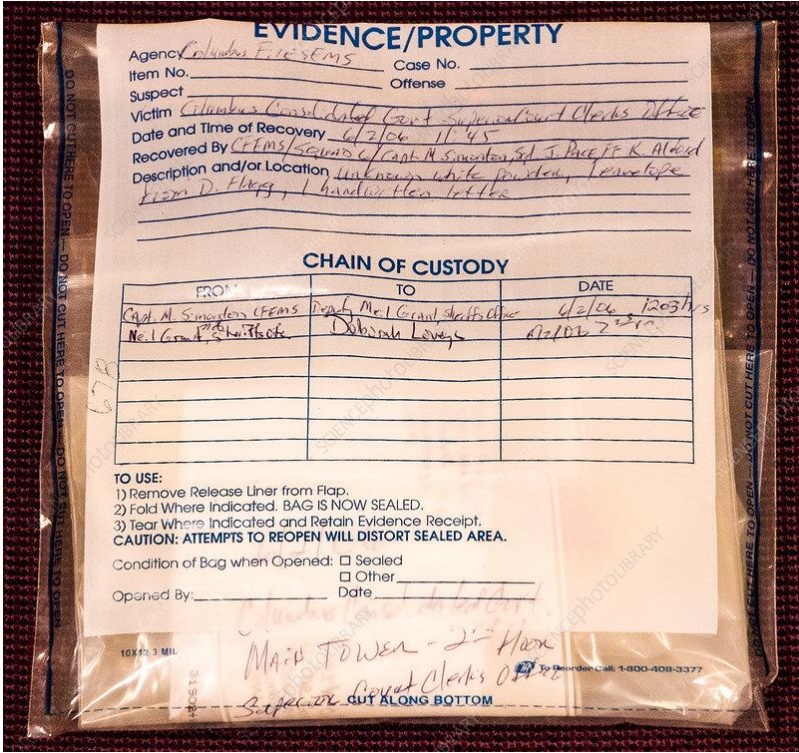 EVIDENCE/PROPERTY
Agency Columbus Fire & EMS Case No.
Item No. Offense
Suspect
Victim Columbus Consolidated Govt Superior Court Clerks Office
Date and Time of Recovery 6/2/06 11:45
Recovered By CFEMS/Squad 6/Capt. M. Simonton, Sgt J. Pace, FF K.
Description and/or Location unknown white powder, 1 envelope
from D. Flagg, 1 handwritten letter
CHAIN OF CUSTODY
FROM TO DATE
Capt. M. Simonton CFEMS Deputy Neil Grant, Sheriffs Office 6/2/06 1203 hrs
Neil Grant, Sheriffs Deborah
67B
TO USE:
1) Remove Release Liner from Flap.
2) Fold Where Indicated. BAG IS NOW SEALED.
3) Tear Where Indicated and Retain Evidence Receipt.
CAUTION: ATTEMPTS TO REOPEN WILL DISTORT SEALED AREA.
Condition of Bag when Opened: Sealed
Other
Opened By: Date
Columbus Consolidated Govt.
10X12 3 MIL
Main Tower - 2nd Floor
To Reorder Call: 1-800-408-3377
Superior Court Clerks Office
CUT ALONG BOTTOM
DO NOT CUT HERE TO OPEN — DO NOT CUT HERE TO OPEN — DO NOT CUT HERE TO OPEN
DO NOT CUT HERE TO OPEN — DO NOT CUT HERE TO OPEN — DO NOT CUT HERE TO OPEN
SCIENCEPHOTOLIBRARY